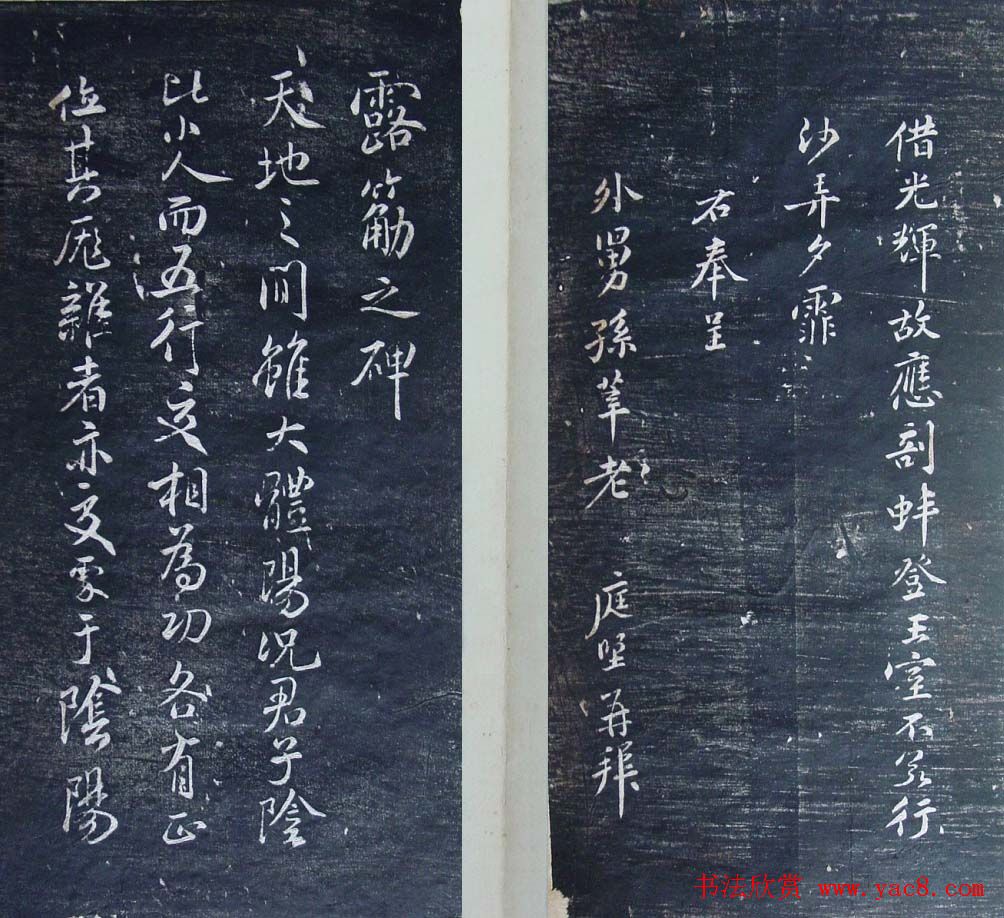 借光輝故應剖蚌登王室不若行
沙弄夕霏
右奉呈
外舅孫莘老 庭堅再拜
露筋之碑
天地之間雖大體陽況君子陰
比小人而五行交相為功各有正
位其厖雜者亦交蒙于陰陽
书法欣赏 www.yac8.com